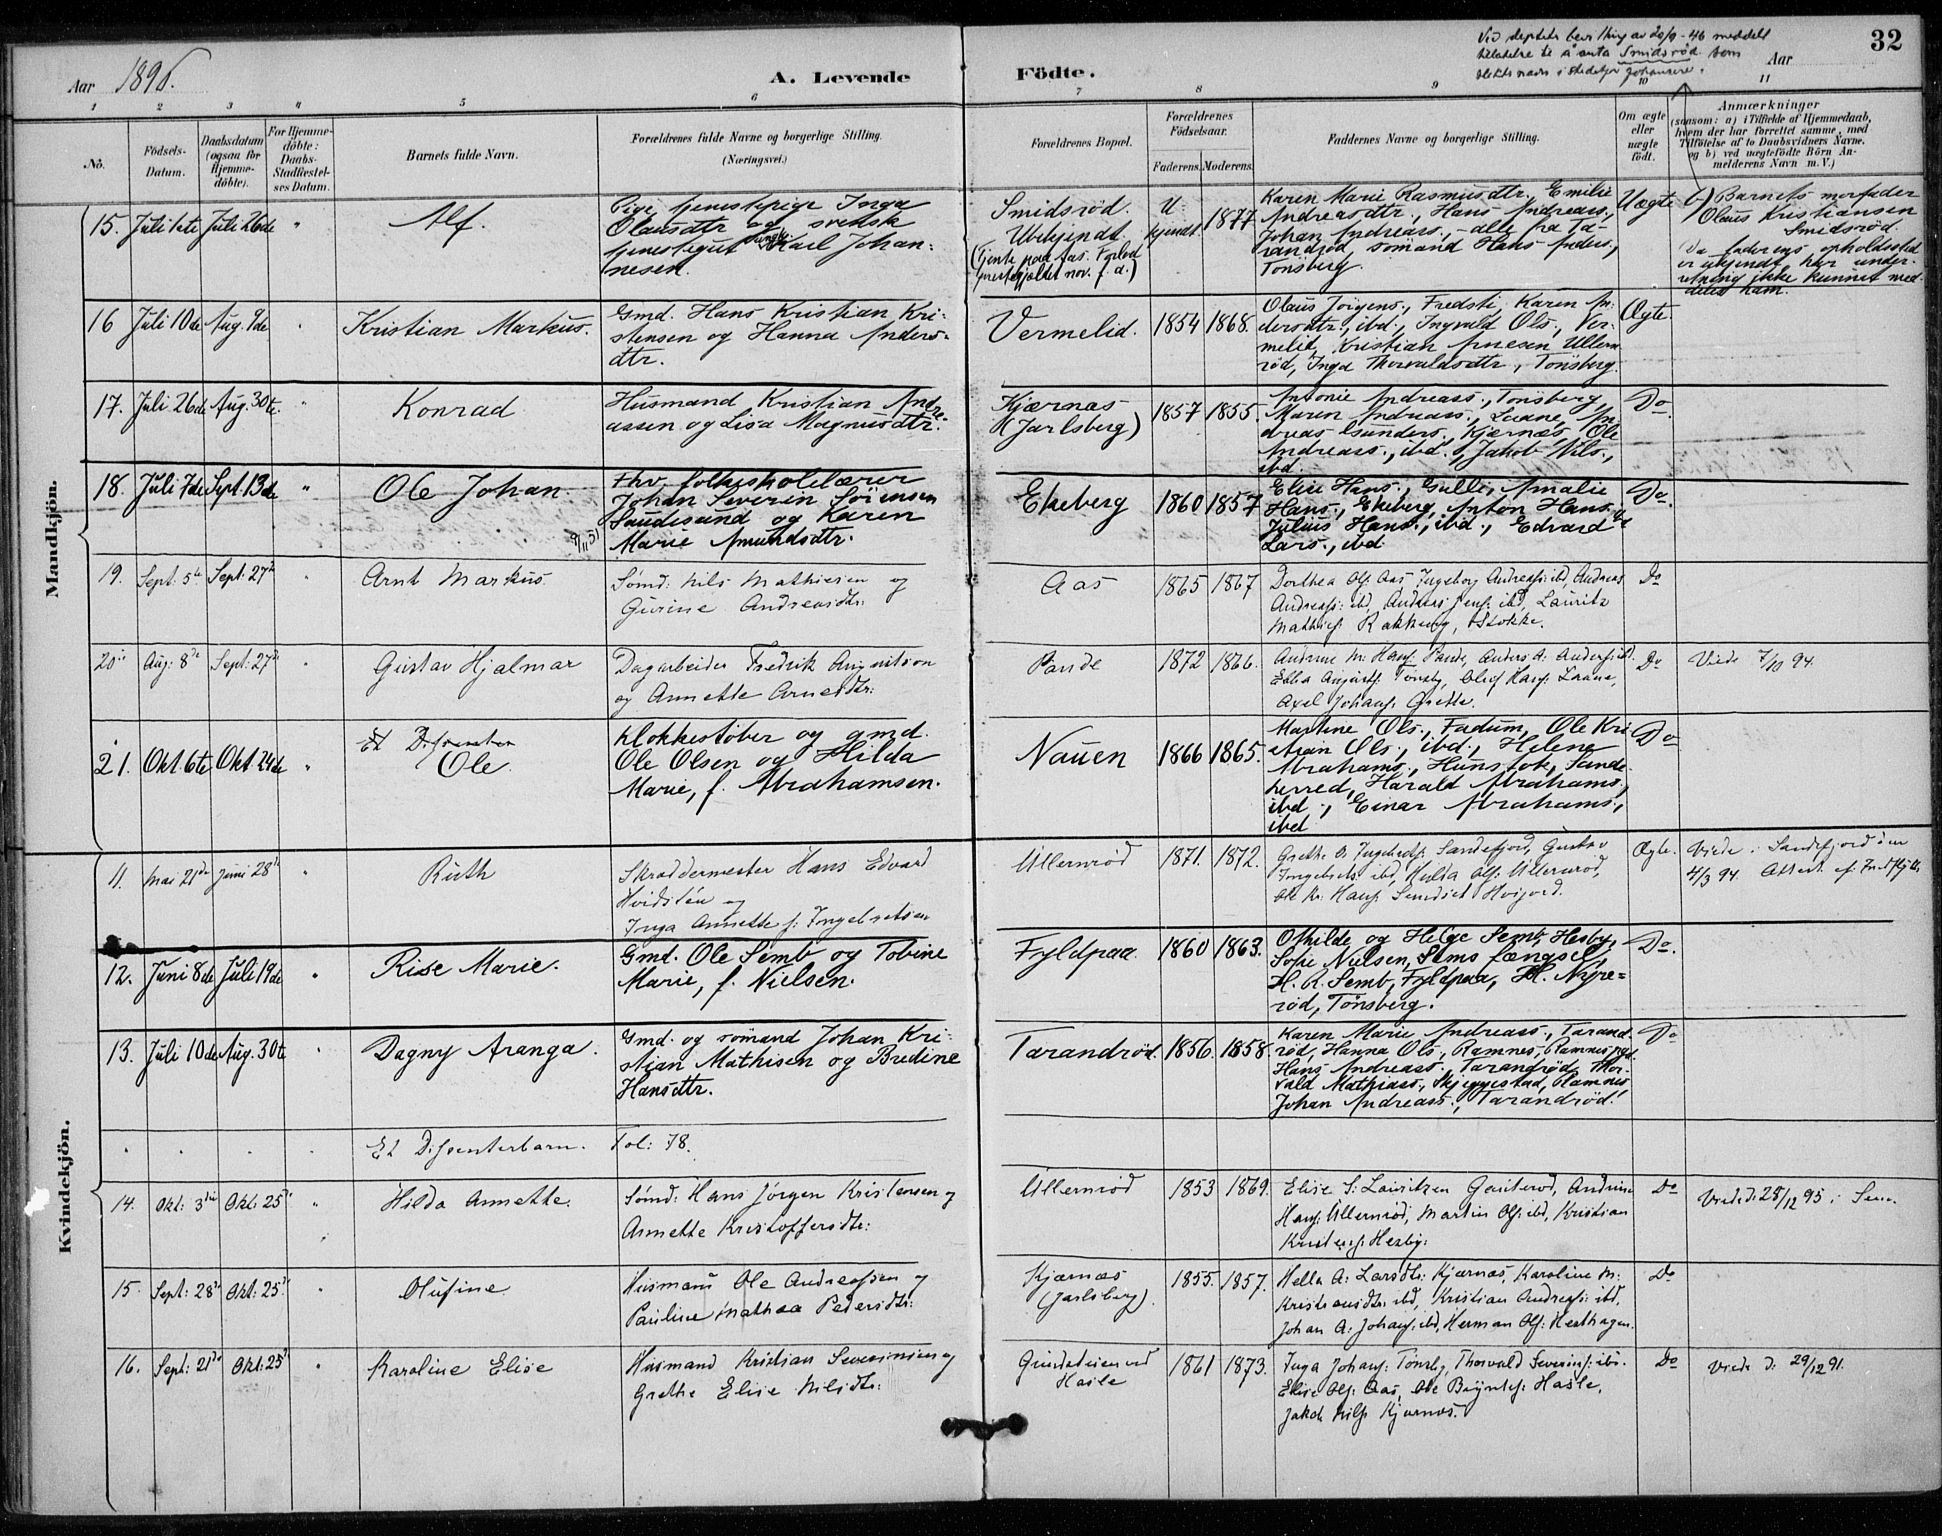 Aar 1896.
A. Levende Fødte.
Smidsrød som
Aar
32
1 2 3 4 5 6 7 8 9 10 11
No.
Fødsels-Datum.
Daabsdatum (ogsaa for Hjemmedøbte).
For Hjemmedøbte: Daabs-Stadfæstelses Datum.
Barnets fulde Navn.
Forældrenes fulde Navne og borgerlige Stilling. (Næringsvei.)
Forældrenes Bopæl.
Forældrenes Fødselsaar.
Faderens. Moderens.
Faddernes Navne og borgerlige Stilling.
Om ægte eller uægte født.
Anmærkninger
(saasom: a) i Tilfælde af Hjemmedaab,
hvem der har forrettet samme, med
Tilføielse af to Daabsvidners Navne,
og b) ved uægtefødte Børn An-
melderens Navn m. V.)
Mandkjön.
15. Juli 1ste Juli 26de " Alf.
Pige tjenestepige Inga
Olausdtr og svensk
tjenestegut Karl Johan-
nesen.
Smidsrød.
Ubekjendt.
U-
kjendt 1877
Karen Marie Rasmusdtr, Emilie
Andreasdtr., Hans Andreass.,
Johan Andreass., - alle fra Ta-
randrød sømand Hans Anders.,
Tønsberg.
Uægte
b) Barnets morfader
Olaus Kristiansen
Smidsrød.
Da faderens opholdssted
er ukjendt, har under-
retning ikke kunnet med-
deles ham.
16 Juli 10de Aug. 9de " Kristian Markus.
Gmd. Hans Kristian Kri-
stensen og Hanna Anders-
dtr.
Vermelid. 1854 1868.
Olaus Jörgens., Fredsti, Karen An-
dersdtr., ibd., Ingvald Ols., Ver-
melid, Kristian Arnesen Ullern-
rød, Inga Thorvaldsdtr, Tønsberg.
Ægte.
17. Juli 26de Aug. 30te " Konrad
Husmand Kristian Andre-
assen og Lisa Magnusdtr.
Kjærnæs
(Jarlsberg)
1857 1855.
Antonie Andreass., Tønsberg,
Maren Andreass., Laane, An-
dreas Gunders., Kjærnæs, Ole
Andreass., ibd., Jakob Nils.,
ibd.
Do
18. Juli 7de Sept. 13de " Ole Johan.
Fhv. folkeskolelærer
Johan Severin Sörensen
Sundsund og Karen
Marie Amundsdtr.
Ekeberg 1860 1857
Elise Hans., Gulli, Amalie
Hans., Ekeberg, Anton Hans.,
Julius Hans., ibd., Edvard
Lars., ibd
Do.
19. Sept. 5te Sept: 27de " Arnt Markus
Sømd: Nils Mathiesen og
Gurine Andreasdtr:
Aas 1865 1867
Dorthea Ols: Aas Ingeborg Andreass: ibd, Andreas
Andreass: ibd, Anders Jens: ibd, Lauritz
Mathies: Rakkevig, Stokke.
Do
20de Aug: 8de Sept: 27de Gustav Hjalmar
Dagarbeider Fredrik Augustson
og Annette Arnesdtr:
Pande 1872 1866.
Do
Viede 7/10 94.
21. Okt. 6te Okt. 24de " Et Dissenter
Ole.
Klokkestøber og gmd.
Ole Olsen og Hilda
Marie, f. Abrahamsen.
Nauen 1866 1865.
Martine Ols., Fadum, Ole Kri-
stian Ols., ibd., Helene
Abrahams., Hunstok, Sande-
herred, Harald Abrahams.,
ibd., Einar Abrahams.,
ibd
Do
Kvindekjön.
11. Mai 21de Juni 28de " Ruth
Skræddermester Hans Edvard
Hvidsten og
Inga Annette f. Ingebretsen
Ullernrød 1871. 1872.
Ægte.
Viede i Sandefjord den
4/3 94.
12. Juni 8de Juli 19de " Rise Marie.
Gmd. Ole Semb og Tobine
Marie, f. Nielsen.
Fyldpaa. 1860 1863.
Othilde og Helge Semb, Hesby,
Sofie Nielsen, Sems fængsel,
H. A. Semb, Fyldpaa, H. Nyre-
rød, Tønsberg.
Do.
13. Juli 10de Aug. 30te " Dagny Aranga.
Gmd. og sømand Johan Kri-
stian Mathisen og Bredine
Hansdtr.
Tarandrød. 1856. 1858.
Karen Marie Andreass., Tarand-
rød, Hanna Ols., Ramnes, Ramnes pgd.
Hans Andreass., Tarandrød, Thor-
vald Mathiass., Skjeggestad, Ramnes,
Johan Andreass., Tarandrød.
Do
Et Dissenterbarn. Fol: 78.
14. Okt: 3die Okt: 25de " Hilda Annette.
Sømd: Hans Jørgen Kristensen og
Annette Kristoffersdtr:
Ullernrød 1853 1869.
Elise S: Lauritzen Gauterød, Andrine
Hans: Ullernrød, Martin Ols: ibd, Kristian
Kristens: Hesby:
Do
Viede d: 28/12 95 i Sem.
15. Sept: 28de Okt: 25de " Olufine
Husmand Ole Andreassen og
Pauline Mathea Pedersdtr:
Kjærnæs
(Jarlsberg).
1855. 1857.
Hella A: Larsdtr: Kjærnæs, Karoline M:
Kristiansdtr: ibd, Kristian Andreass: ibd,
Johan A: Johans: ibd, Herman Ols: Hesthagen.
Do
16. Sept: 21de Okt: 25de " Karoline Elise
Husmand Kristian Severinsen og
Grethe Elise Nilsdtr:
Hasle
1861 1873.
Inga Johans: Tønsbg, Thorvald Severins: ibd.
Elise Ols: Aas, Ole Brynils: Hasle,
Jakob Nils: Kjærnæs.
Do
Viede d: 29/12 91.